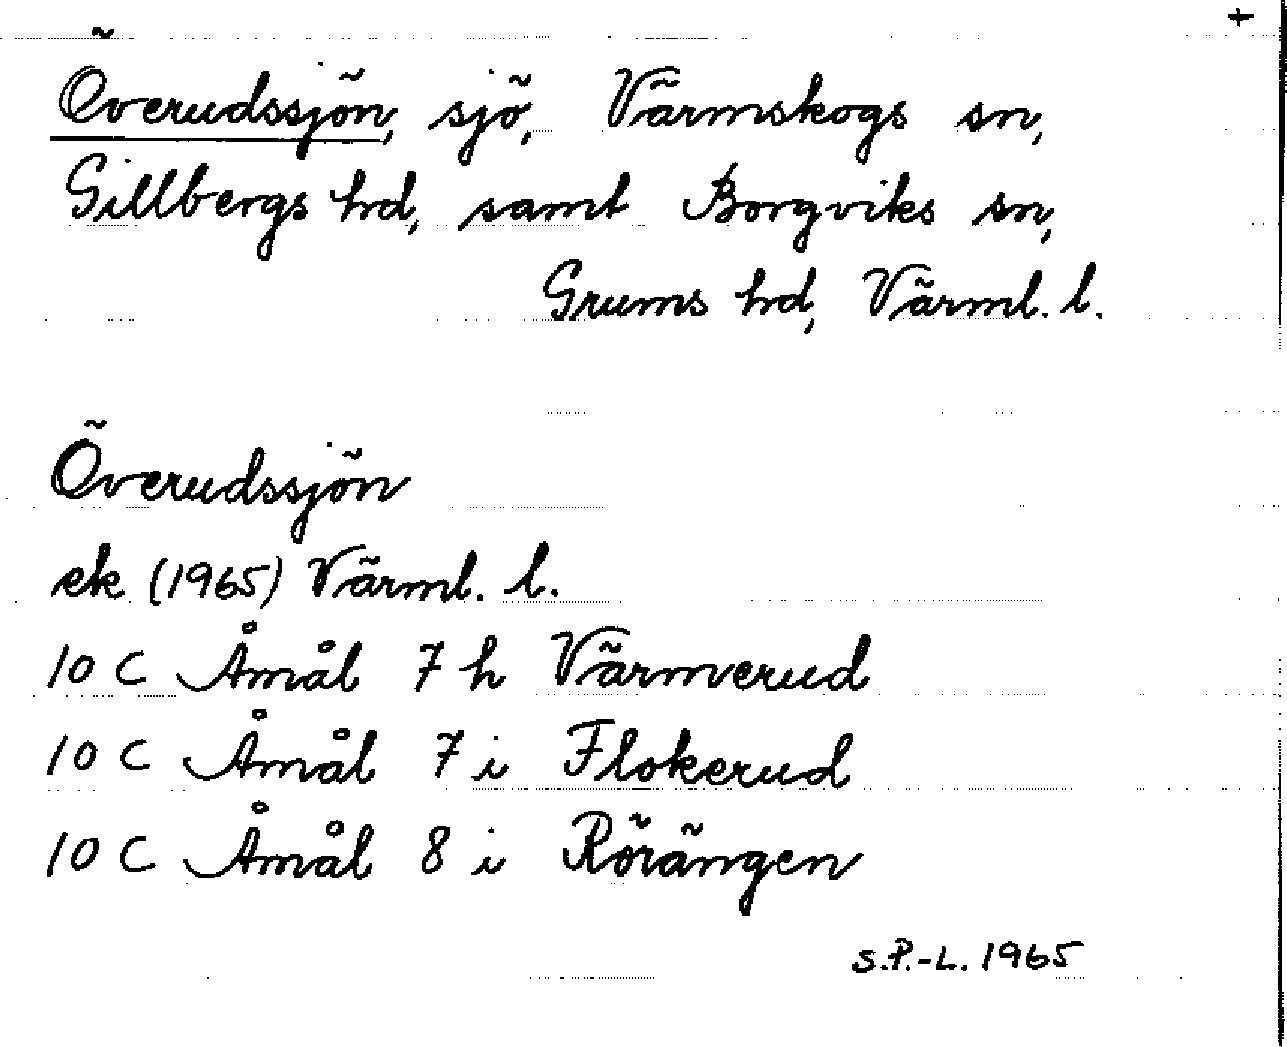 +
Överudssjön, sjö, Värmskogs sn,
Gillbergs hd, samt Borgviks sn,
Grums hd, Värml. l.
Överudssjön
ek (1965) Värml. l.
10 C Åmål 7 h Värmverud
10 C Åmål 7 i Flokerud
10 C Åmål 8 i Rörängen
S.P.-L. 1965